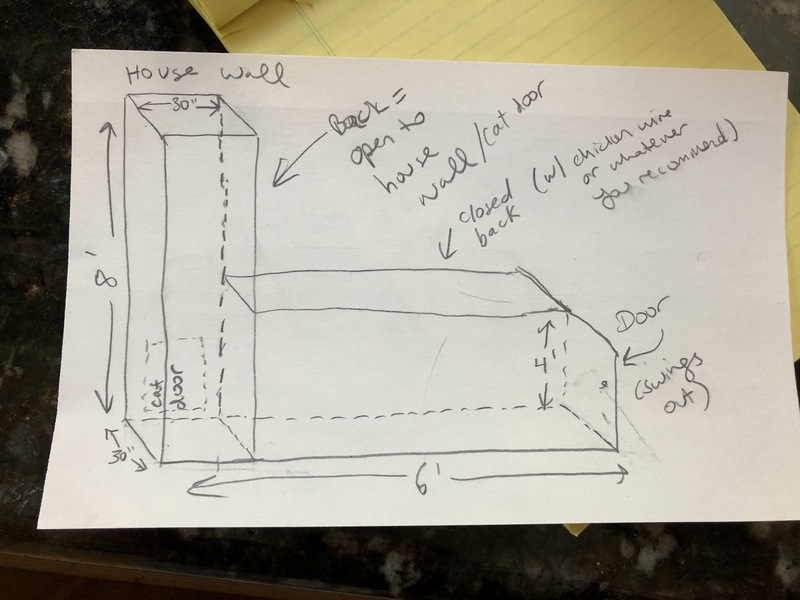 House wall
30"
Back =
open to
house
wall/cat door
closed
back
(w/ chicken wire
or whatever
you recommend)
8'
4'
Door
(swings
out)
cat
door
30"
6'